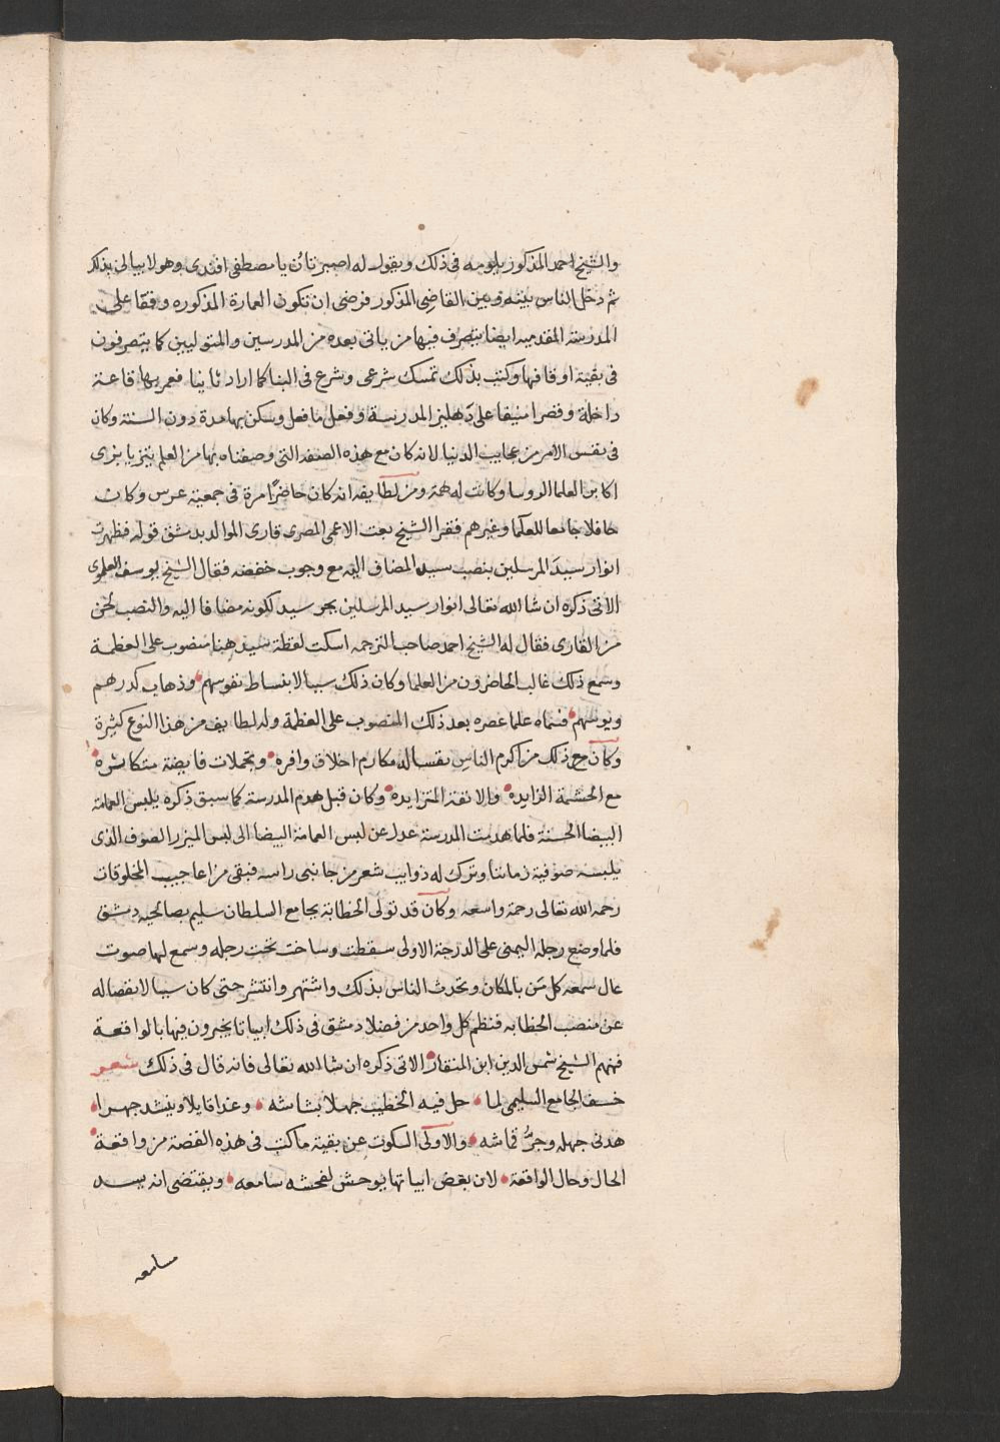 والشيخ احمد المذكور يلومه فى ذلك ويقول له اصبر تأن يا مصطفى افندى وهو لا يبالى بذلك
ثم دخل الناس بينه وبين القاضى المذكور فرضى ان تكون العمارة المذكوره وقفا على
المدرسة المقدميه ايضا يتصرف فيها من ياتى بعده من المدرسين والمتوليين كما يتصرفون
فى بقية اوقافها وكتب بذلك تمسك شرعى وشرع فى البنا كما اراد ثانيا فعمر بها قاعة
داخلة وقصرا منيفا على دهليز المدرسة وفعل ما فعل وسكن بها مدة دون السنة وكان
فى نفس الامر من عجايب الدنيا لانه كان مع هذه الصفه التى وصفناه بها من العلم يتزيا بزى
اكابر العلما الروسا وكانت له همة ومن لطايفه انه كان حاضرًا مرة فى جمعية عرس وكان
حافلا جامعا للعلما وغيرهم فقرا الشيخ نعت الاعمى المصرى قارى الموالد بدمشق قوله فظهرت
انوار سيدَ المرسلين بنصب سيد المضاف اليه مع وجوب خفضه فقال الشيخ يوسف العلموى
الاتى ذكره ان شا الله تعالى انوار سيد المرسلين بجر سيد لكونه مضافا اليه والنصب لحن
من القارى فقال له الشيخ احمد صاحب الترجمه اسكت لفظة سيد هنا منصوب على العظمة
وسمع ذلك غالب الحاضرون من العلما وكان ذلك سببا لانبساط نفوسهم وذهاب كدرهم
وبوسهم فسماه علما عصره بعد ذلك المنصوب على العظمة وله لطايف من هذا النوع كثيرة
وكان مع ذلك من اكرم الناس نفسا له مكارم اخلاق وافره وتجملات فايضة متكاثره
مع الحشمة الزايده والانفة المتزايده وكان قبل هدم المدرسة كما سبق ذكره يلبس العمامة
البيضا الحسنة فلما هدمت المدرسة عدل عن لبس العمامة البيضا الى لبس الميزر الصوف الذى
يلبسه صوفية زماننا وترك له ذوايب شعر من جانبى راسه فبقى من اعاجيب المخلوقات
رحمه الله تعالى رحمة واسعه وكان قد تولى الخطابة بجامع السلطان سليم بصالحيه دمشق
فلما وضع رجله اليمنى على الدرجة الاولى سقطت وساخت تحت رجله وسمع لها صوت
عال سمعه كل من بالمكان وتحدث الناس بذلك واشتهر وانتشر حتى كان سببا لانفصاله
عن منصب الخطابه فنظم كل واحد من فضلا دمشق فى ذلك ابياتا يخبرون فيها بالواقعة
فمنهم الشيخ شمس الدين ابن المنقار الاتى ذكره ان شا الله تعالى فانه قال فى ذلك شعر
خسف الجامع السليمى لما حل فيه الخطيب جهلا بشاشه وغدا قايلا وينشد جهرا
هدنى جهله وجرُّ قماشه والاولى السكوت عن بقية ما كتب فى هذه القصة من واقعة
الحال وحال الواقعة لان بعض ابياتها يوحش لفحشه سامعه ويقتضى انه يسد
مسامعه